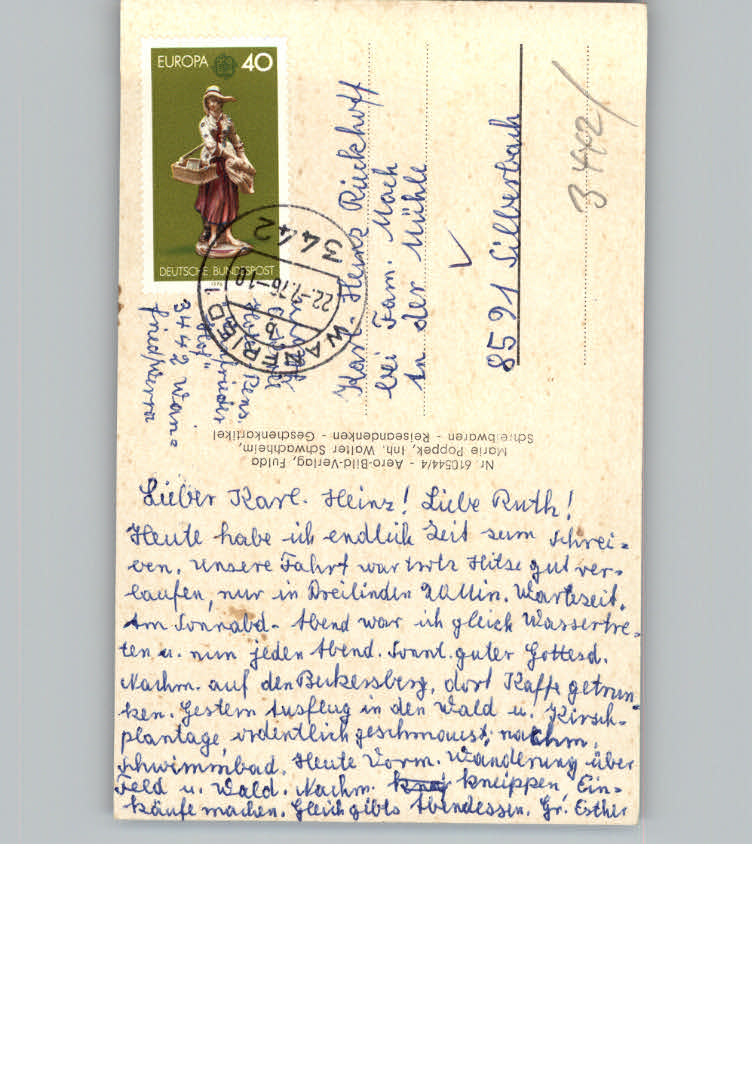 EUROPA 40
DEUTSCHE BUNDESPOST
WANFRIED 1
22.-7.76-10
b
3442
Hotel Pens.
Hof"
3442 Wan=
fried/Werra
Karl-Heinz Rückhoff
bei Fam. Mach
In der Mühle
8591 Silberbach
3442/
Nr. 610544/4 - Aero-Bild-Verlag, Fulda
Marie Poppek, Inh. Walter Schwachheim,
Schreibwaren - Reiseandenken - Geschenkartikel
Lieber Karl-Heinz! Liebe Ruth!
Heute habe ich endlich Zeit zum Schrei=
ben. Unsere Fahrt war trotz Hitze gut ver=
laufen, nur in Dreilinden 20 Min. Wartezeit.
Am Sonnabd.-Abend war ich gleich Wassertre=
ten u. nun jeden Abend. Sonnt. guter Gottesd.
Nachm. auf den , dort Kaffe getrun=
ken. Gestern Ausflug in den Wald u. Kirsch=
plantage, ordentlich geschmaust, nachm.
Schwimmbad. Heute Vorm. Wanderung über
Feld u. Wald. Nachm. kneippen, Ein=
käufe machen. Gleich gibts Abendessen. Gr. Esther